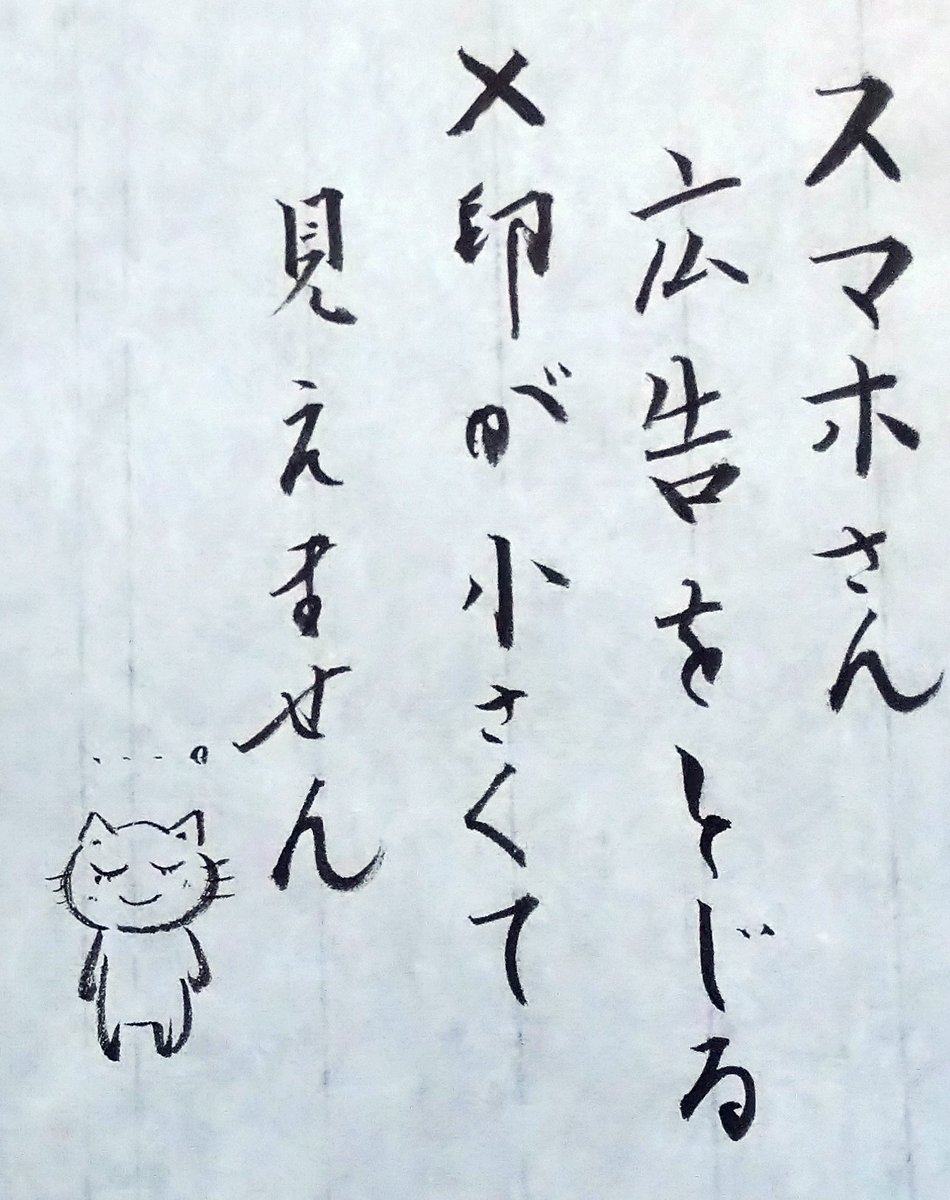 スマホさん
広告をとじる
×印が小さくて
見えません
....。